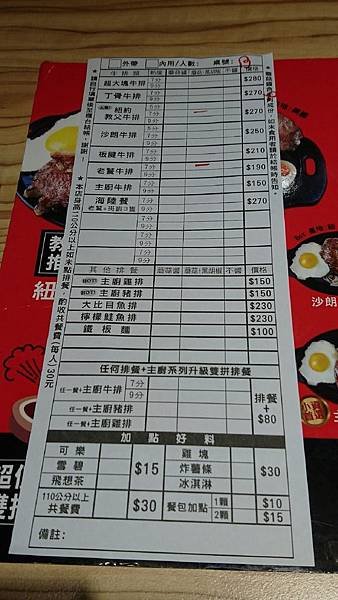 外帶 內用/人數: 桌號:
牛排類 熟度 蘑菇醬 蘑菇+黑胡椒 不醬 價格
超大塊牛排 7分 9分 $280
丁骨牛排 7分 9分 $270
紐約教父牛排 7分 9分 $270
沙朗牛排 5分 7分 9分 $250
板腱牛排 7分 9分 $210
老饕牛排 7分 9分 $190
主廚牛排 7分 9分 $150
海陸餐 7分 9分 $270
其他排餐 蘑菇醬 蘑菇+黑胡椒 不醬 價格
HOT! 主廚雞排 $150
HOT! 主廚豬排 $150
大比目魚排 $230
檸檬鮭魚排 $230
鐵板麵 $100
任何排餐+主廚系列升級雙拼排餐
任一餐+主廚牛排 7分 9分
任一餐+主廚豬排
任一餐+主廚雞排
排餐
+
$80
加點好料
可樂 雞塊
雪碧 $15 炸薯條 $30
飛想茶 冰淇淋
110公分以上共餐費 $30 餐包加點 1顆 $10 2顆 $15
備註:
★本店身高110公分以上如未點排餐,酌收共餐費(每人)30元
沙朗